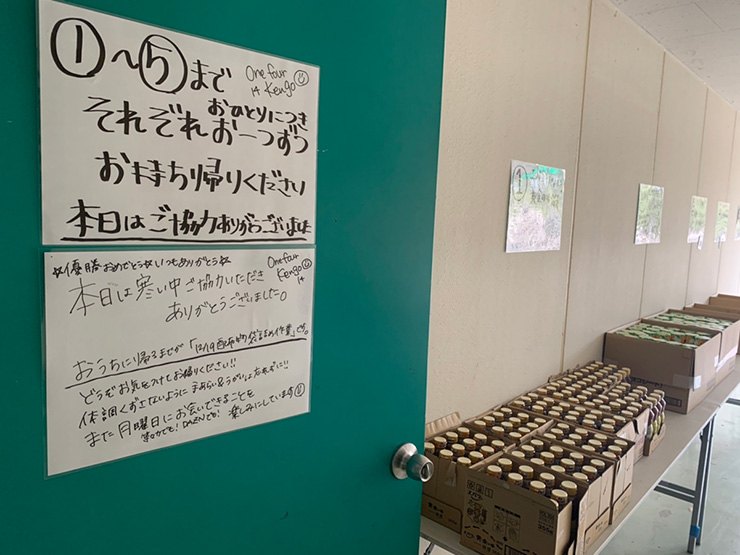 ①〜⑤まで
One four
14 Kengo
おひとりにつき
それぞれ お一つずつ
お持ち帰りください
本日はご協力ありがとうございました
☆優勝おめでとう☆いつもありがとう☆
One four
Kengo
14
本日は寒い中ご協力いただき
ありがとうございました。
おうちに帰るまでが「12/19配布物袋詰め作業」です。
どうぞお気をつけてお帰りください!!
体調くずさないように 手あらい&うがいは忘れずに!!
また 月曜日にお会いできることを
車の中でも! DAZNでも! 楽しみにしています
①